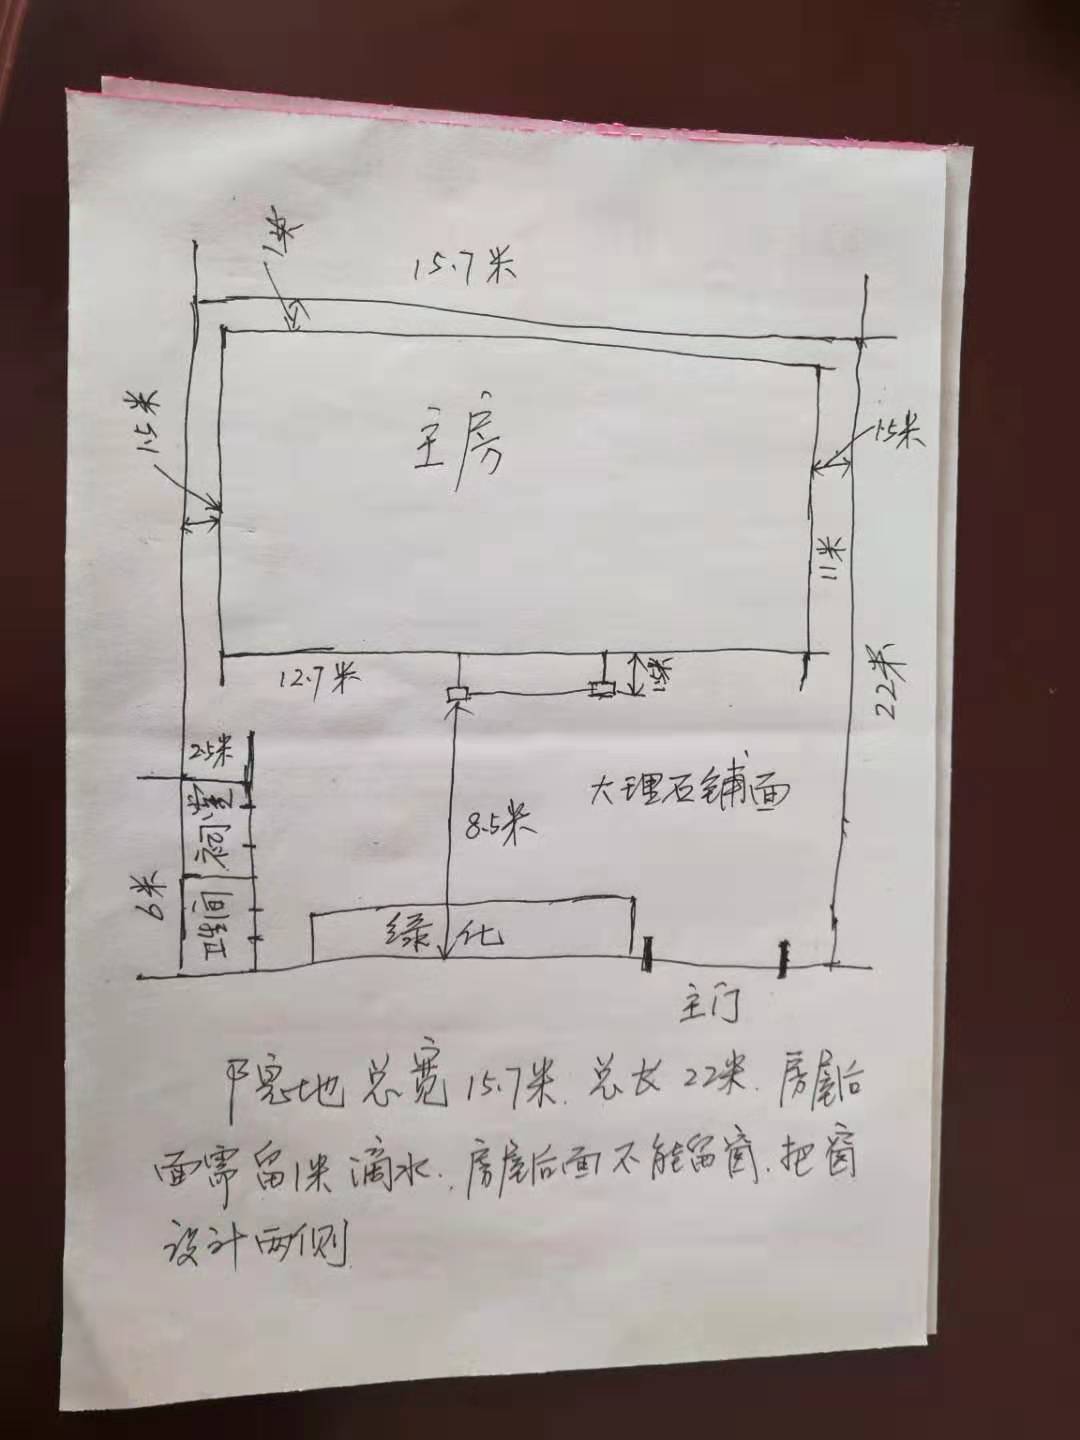 1米
15.7米
1.5米
主房
1.5米
11米
12.7米
1.5米
22米
2.5米
大理石铺面
8.5米
6米
卫生间
绿化
主门
总宽15.7米.总长22米.房屋后
面需留1米滴水.房屋后面不能留窗.把窗
设计两侧